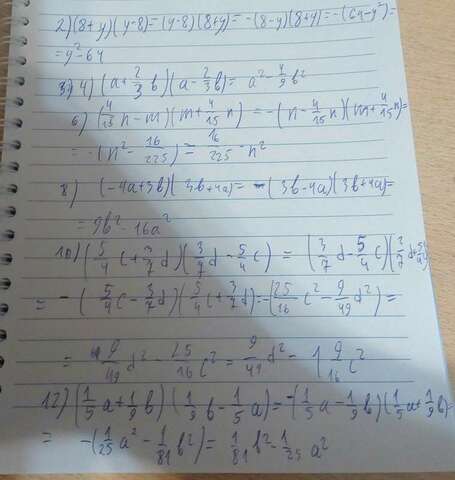 2) (8+y)(y-8)=(y-8)(8+y)=-(8-y)(8+y)=-(64-y²)=
=y²-64
3) 4) (a+2/3 b)(a-2/3 b)= a²-4/9 b²
6) (4/15 n-m)(m+4/15 n) = -(n-4/15 n)(m+4/15 n)=
= -(n²-16/225)= 16/225 - n²
8) (-4a+3b)(3b+4a)= (3b-4a)(3b+4a)=
= 9b²-16a²
10) (5/4 c+3/7 d)(3/7 d-5/4 c) = (3/7 d-5/4 c)(3/7 d+5/4 c)
= -(5/4 c-3/7 d)(5/4 c+3/7 d)=(25/16 c²-9/49 d²)=
= 9/49 d²-25/16 c²= 9/49 d²-1 9/16 c²
12) (1/5 a+1/9 b)(1/9 b-1/5 a)=-(1/5 a-1/9 b)(1/5 a+1/9 b)=
= -(1/25 a²-1/81 b²)= 1/81 b²-1/25 a²